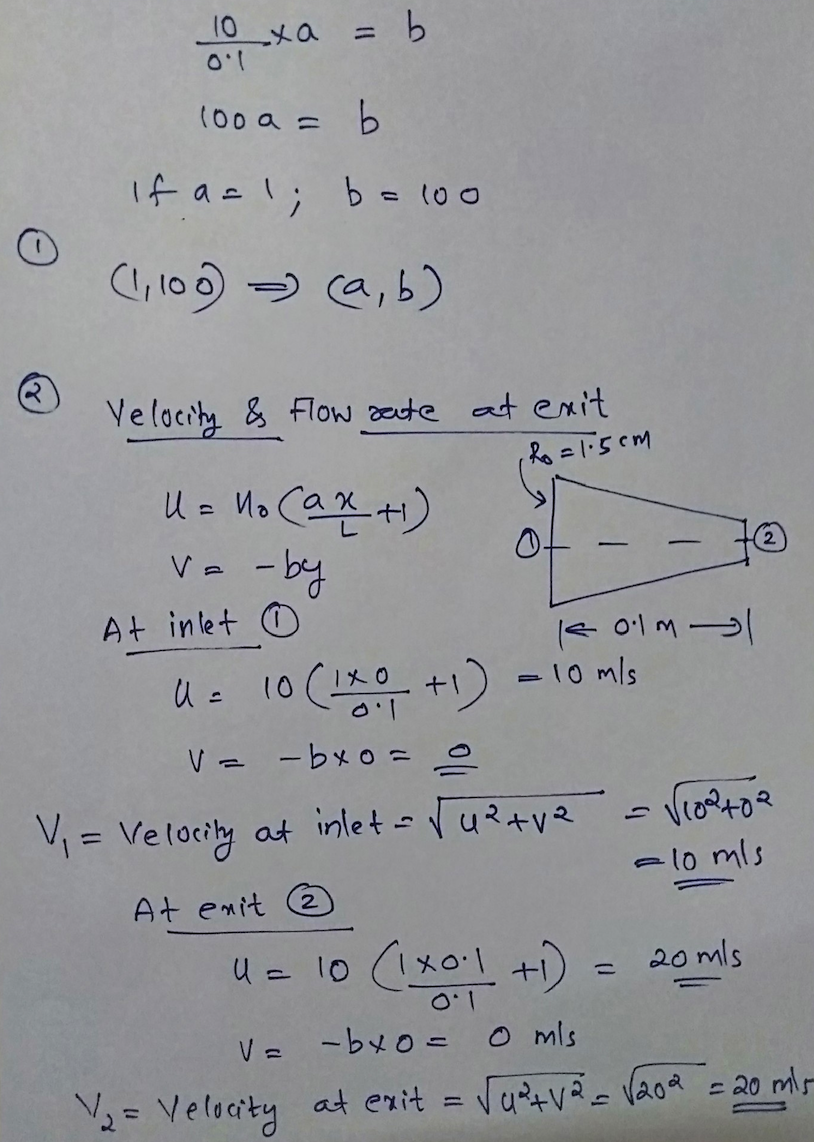 10/0.1 × a = b
100 a = b
If a = 1; b = 100
① (1,100) ⇒ (a, b)
② Velocity & Flow rate at exit
R₀ = 1.5 cm
U = U₀ (ax/L + 1)
① ②
V = -by
At inlet ①
|← 0.1 m →|
U = 10 (1×0/0.1 + 1) = 10 m/s
V = -b×0 = 0
V₁ = Velocity at inlet = √(U²+V²) = √(10²+0²)
= 10 m/s
At exit ②
U = 10 (1×0.1/0.1 + 1) = 20 m/s
V = -b×0 = 0 m/s
V₂ = Velocity at exit = √(U²+V²) = √(20²) = 20 m/s